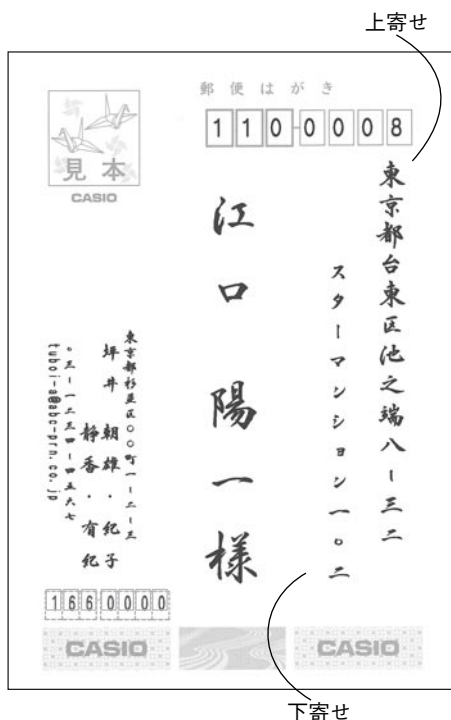 上寄せ
郵便はがき
110-0008
見本
CASIO
東京都台東区池之端八ー三二
スターマンション一〇二
江口陽一様
東京都杉並区〇〇町一ー二ー三
坪井 朝雄・紀子
静香・有紀
〇三ー一二三四ー四五六七
tuboi-a@abc-prn.co.jp
166-0000
CASIO CASIO
下寄せ